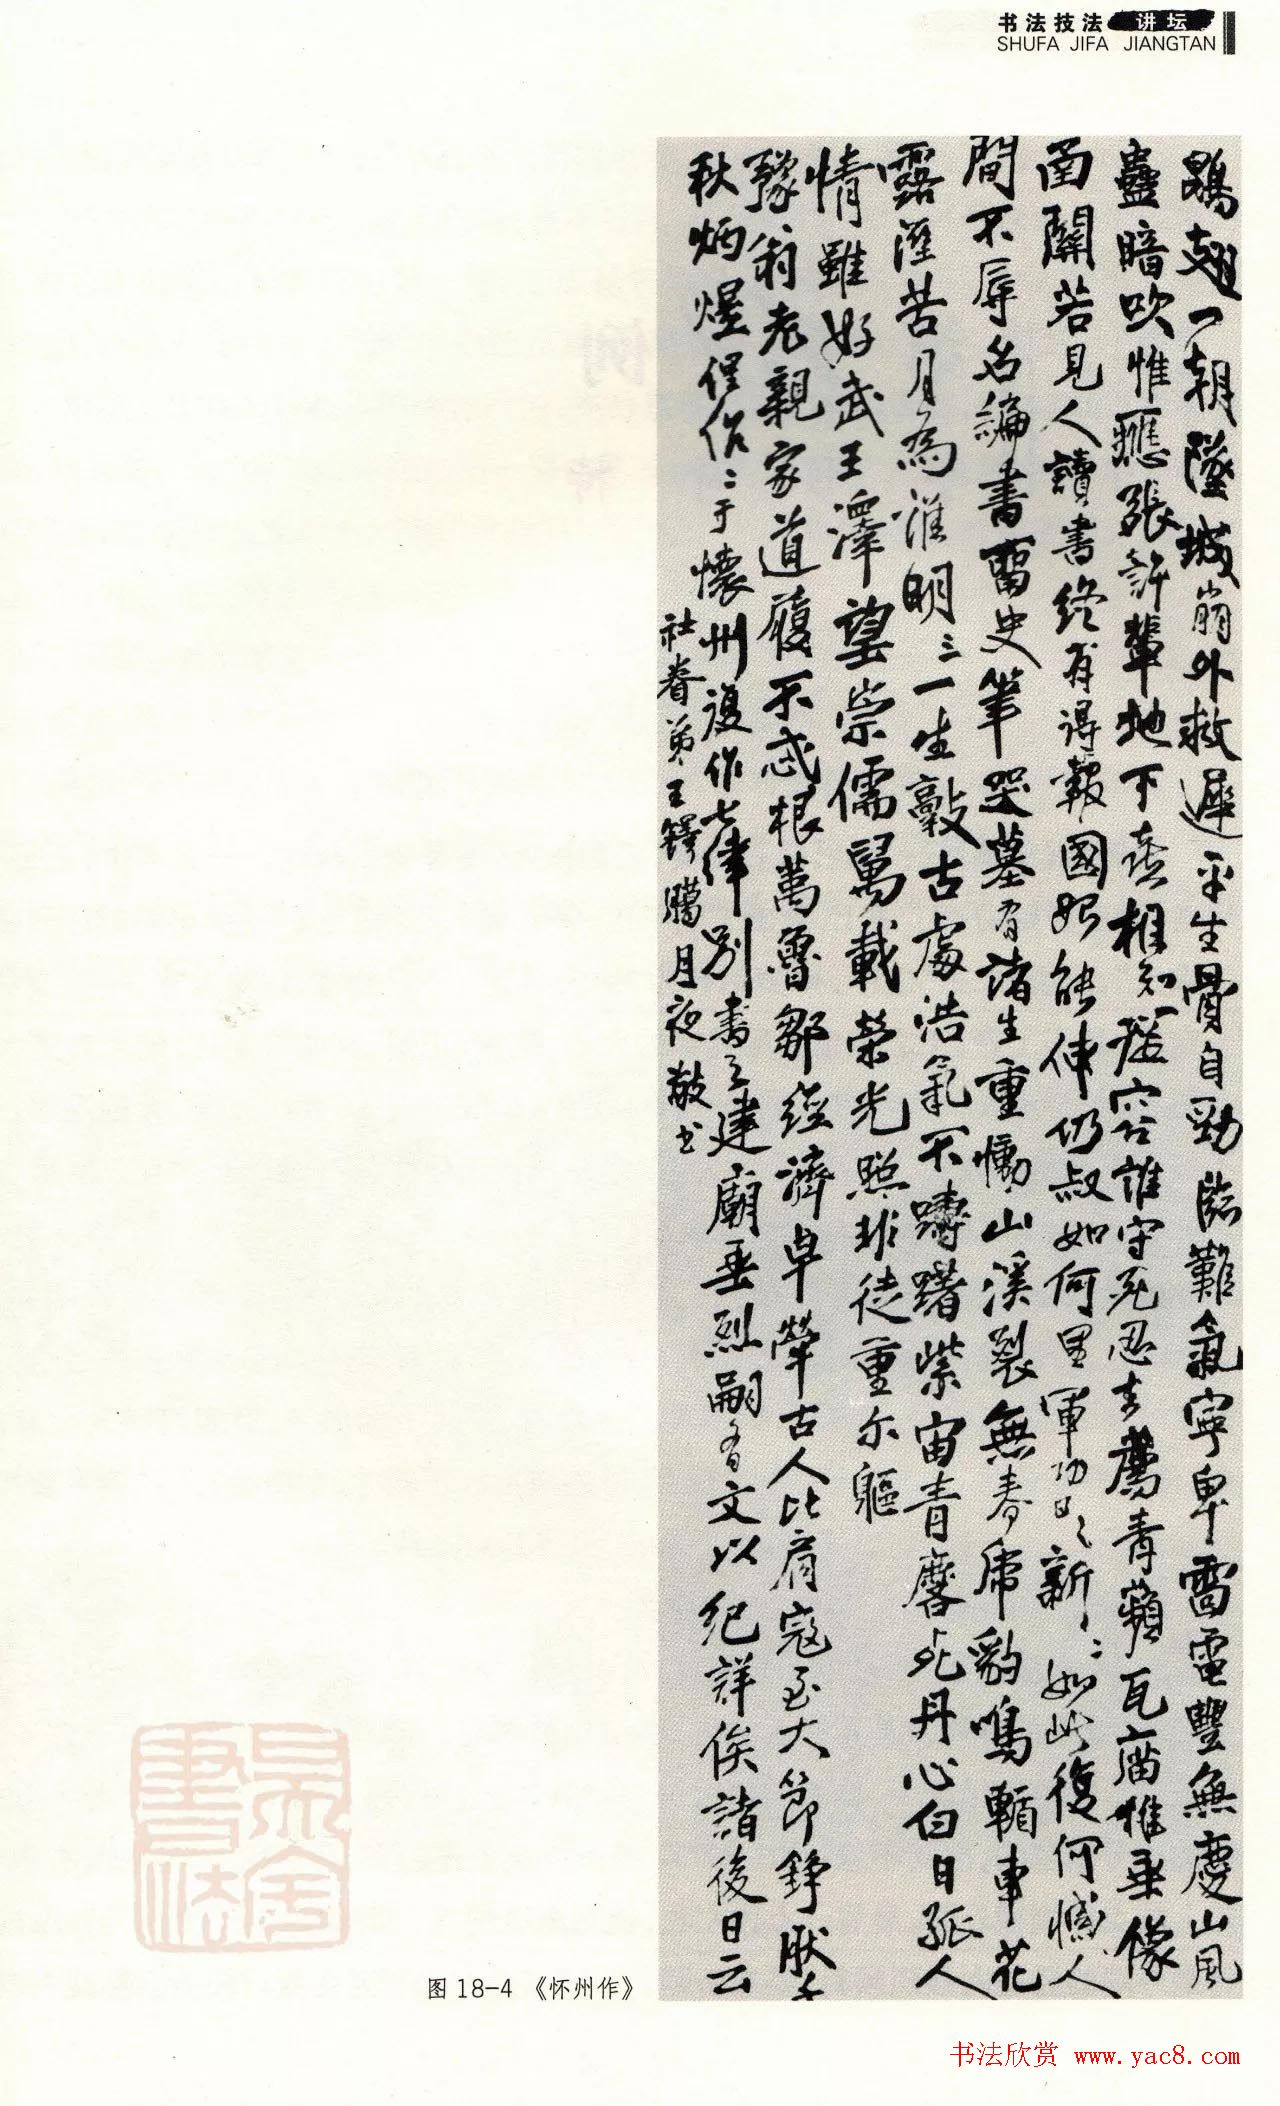 书法技法 讲坛
SHUFA JIFA JIANGTAN
鶚翅一朝墜城崩外救遲平生骨自勁臨難氣寧卑雷電豐無慶山風
蠱暗吹惟應張許輩地下喜相知 容誰守死忍去薦青蘋瓦廟惟垂像
函關若見人讀書終有得報國始能伸仍叔如何里軍功日新如此復何憾人
間不辱名編書留史筆哭墓有諸生重慟山溪裂無春虎豹鳴輴車花
露溼苦月為誰明三一生敦古處浩氣不躊躇紫宙青麐死丹心白日孤人
情雖好武王澤望崇儒萬載榮光照非徒重尔軀
豫翁老親家道履不忒根萬魯鄒經濟卓犖古人比肩寇至大節錚
秋炳煜 于懷州復作七律別書之建廟垂烈嗣有文以紀詳俟諸後日云
社眷弟王鐸臘月夜敬書
图 18-4 《怀州作》
吴舍書法
书法欣赏 www.yac8.com